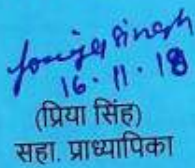 Singh
16.11.18
(प्रिया सिंह)
सहा. प्राध्यापिका